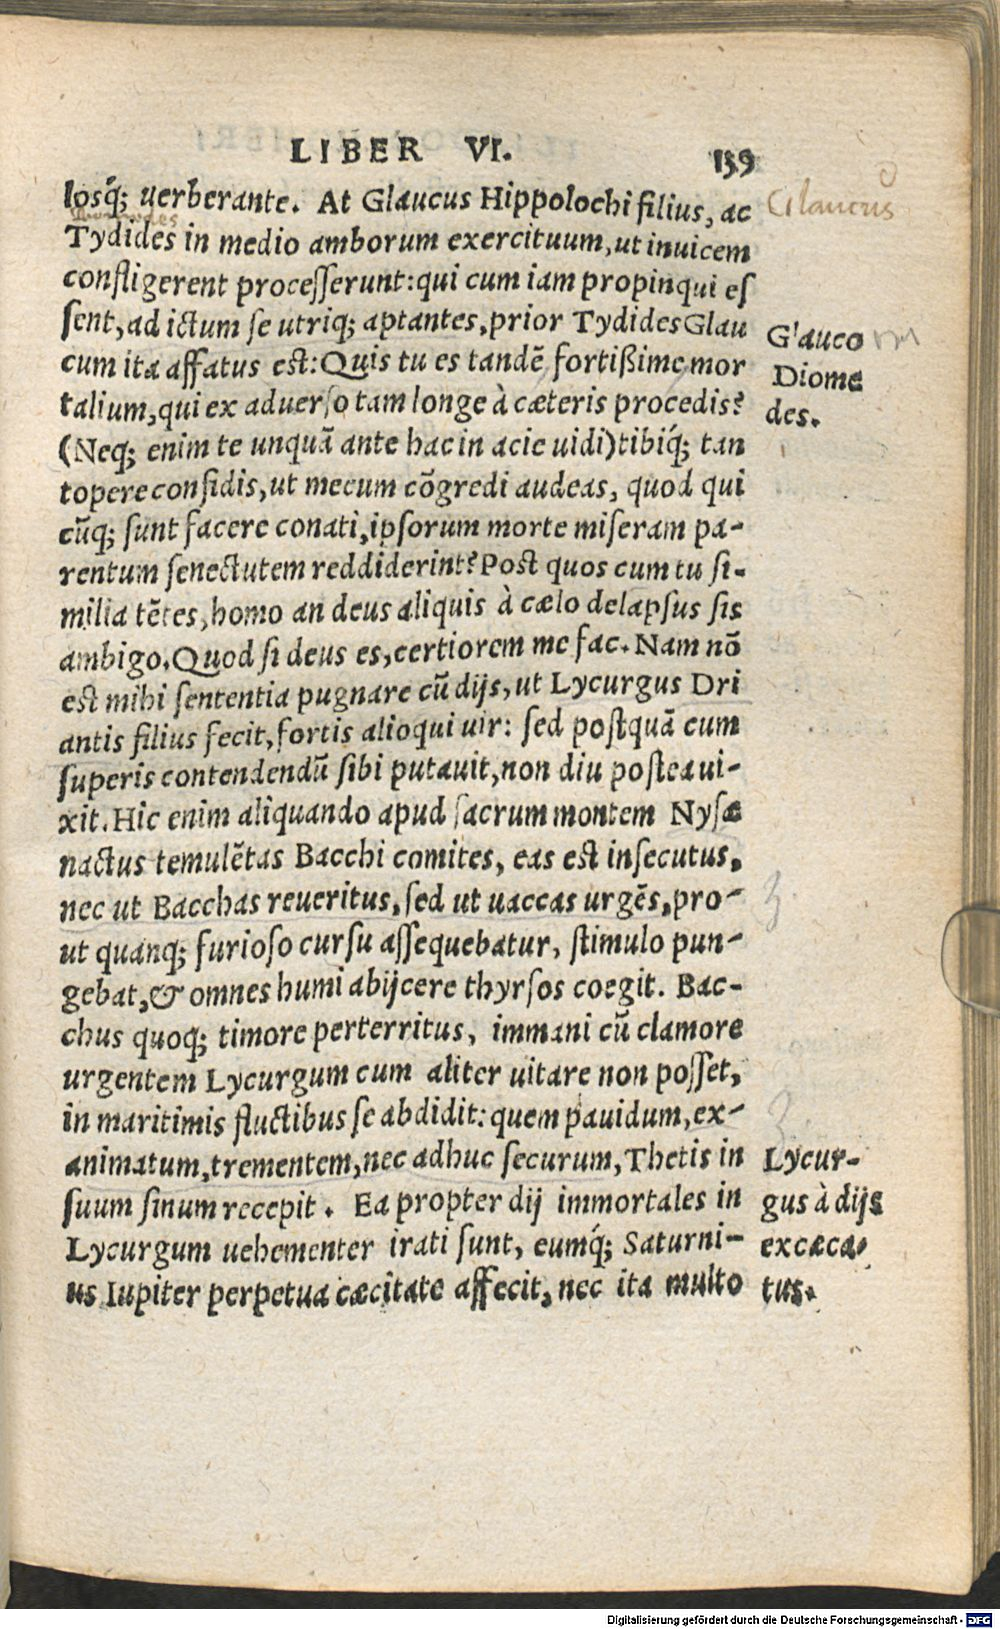 LIBER VI. 139
losq́; uerberante. At Glaucus Hippolochi filius, ac
Glaucus
Diomedes
Tydides in medio amborum exercituum, ut inuicem
confligerent processerunt: qui cum iam propinqui es
sent, ad ictum se utriq; aptantes, prior Tydides Glau
cum ita affatus est: Quis tu es tandē fortißime mor
talium, qui ex aduerso tam longe à cæteris procedis?
(Neq; enim te unquā ante hac in acie uidi) tibiq́; tan
topere confidis, ut mecum cōgredi audeas, quod qui
cūq; sunt facere conati, ipsorum morte miseram pa-
rentum senectutem reddiderint? Post quos cum tu si-
milia tētes, homo an deus aliquis à cælo delapsus sis
ambigo. Quod si deus es, certiorem me fac. Nam nō
est mihi sententia pugnare cū dijs, ut Lycurgus Dri
antis filius fecit, fortis alioqui uir: sed postquā cum
superis contendendū sibi putauit, non diu postea ui-
xit. Hic enim aliquando apud sacrum montem Nysæ
nactus temulētas Bacchi comites, eas est insecutus,
nec ut Bacchas reueritus, sed ut uaccas urgēs, pro-
ut quanq; furioso cursu assequebatur, stimulo pun-
gebat, & omnes humi abijcere thyrsos coegit. Bac-
chus quoq; timore perterritus, immani cū clamore
urgentem Lycurgum cum aliter uitare non posset,
in maritimis fluctibus se abdidit: quem pauidum, ex-
animatum, trementem, nec adhuc securum, Thetis in
suum sinum recepit. Ea propter dij immortales in
Lycurgum uehementer irati sunt, eumq́; Saturni-
us Iupiter perpetua cæcitate affecit, nec ita multo
Glauco
Diome
des.
Lycur-
gus à dijs
excæca-
tus.
Digitalisierung gefördert durch die Deutsche Forschungsgemeinschaft - DFG